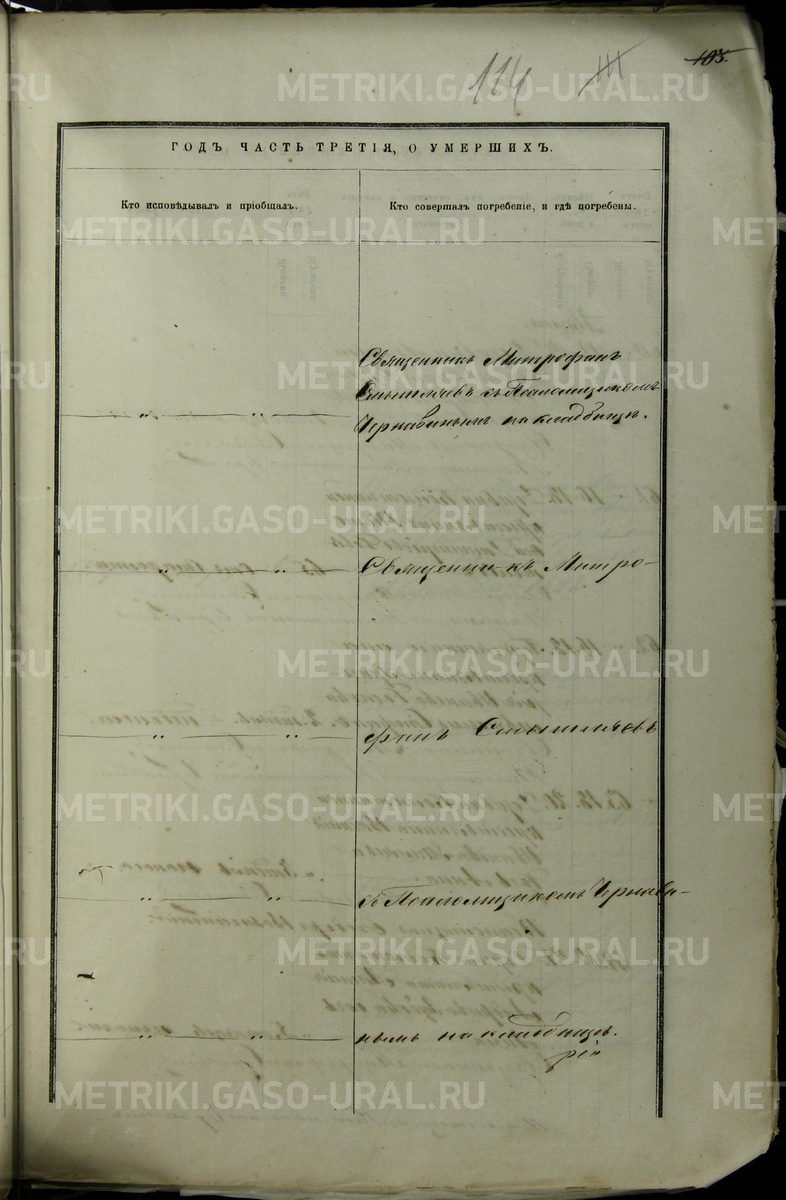 114 111 103.
ГОДЪ ЧАСТЬ ТРЕТІЯ, О УМЕРШИХЪ.
Кто исповѣдывалъ и пріобщалъ.
Кто совершалъ погребеніе, и гдѣ погребены.
Священникъ Митрофанъ
Смышляевъ съ Псаломщикомъ
" " Чернавинымъ на кладбищѣ.
" " Священникъ Митро-
" " фанъ Смышляевъ
" " съ Псаломщикомъ Чернави-
" " нымъ на кладбищѣ.
рія
METRIKI.GASO-URAL.RU